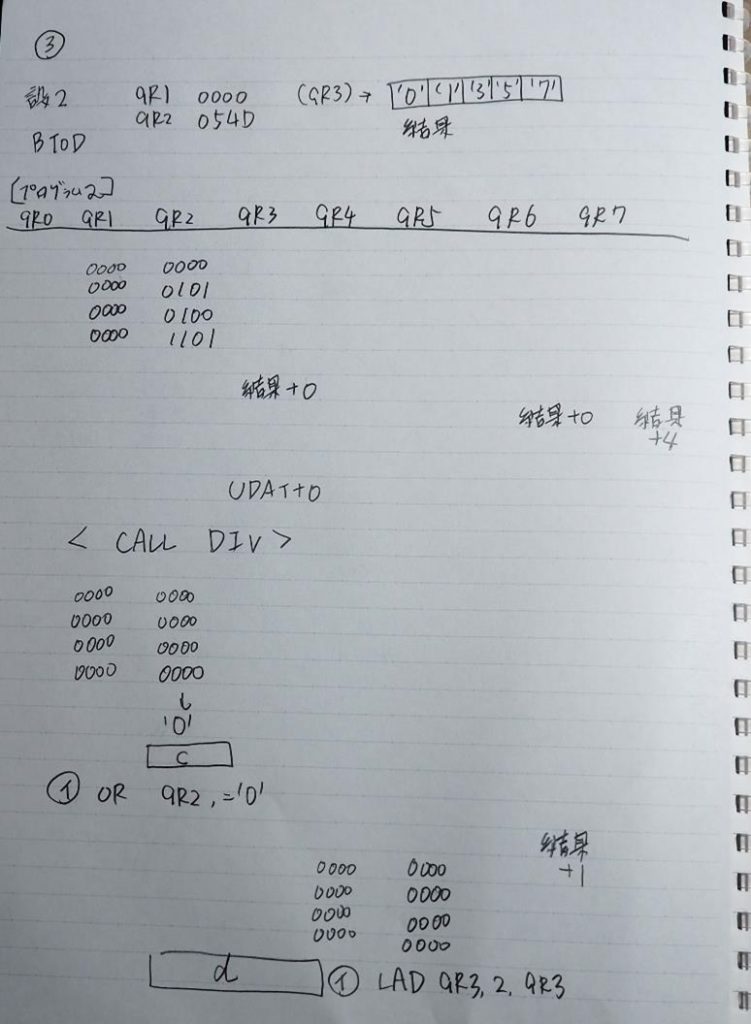 ③
設2 GR1 0000 (GR3)→ '0' '1' '3' '5' '7'
GR2 054D 結果
BTOD
[プログラム2]
GR0 GR1 GR2 GR3 GR4 GR5 GR6 GR7
0000 0000
0000 0101
0000 0100
0000 1101
結果+0
結果+0 結果
+4
UDAT+0
< CALL DIV >
0000 0000
0000 0000
0000 0000
0000 0000
↓
'0'
c
① OR GR2, ='0'
結果
+1
0000 0000
0000 0000
0000 0000
0000 0000
d ① LAD GR3, 2, GR3